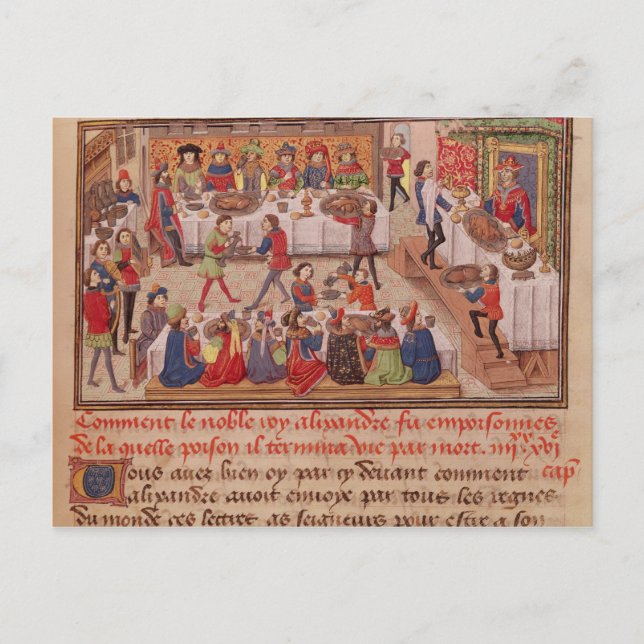 Comment le noble roy alixandre fu empoisonnes
de la quelle poison il termina vie par mort. iiii xx xvi e
Vous avez bien oy par cy devant comment cap
alixandre avoit envoye par tous les regnes
du monde ces lettres as seigneurs pour estre a son